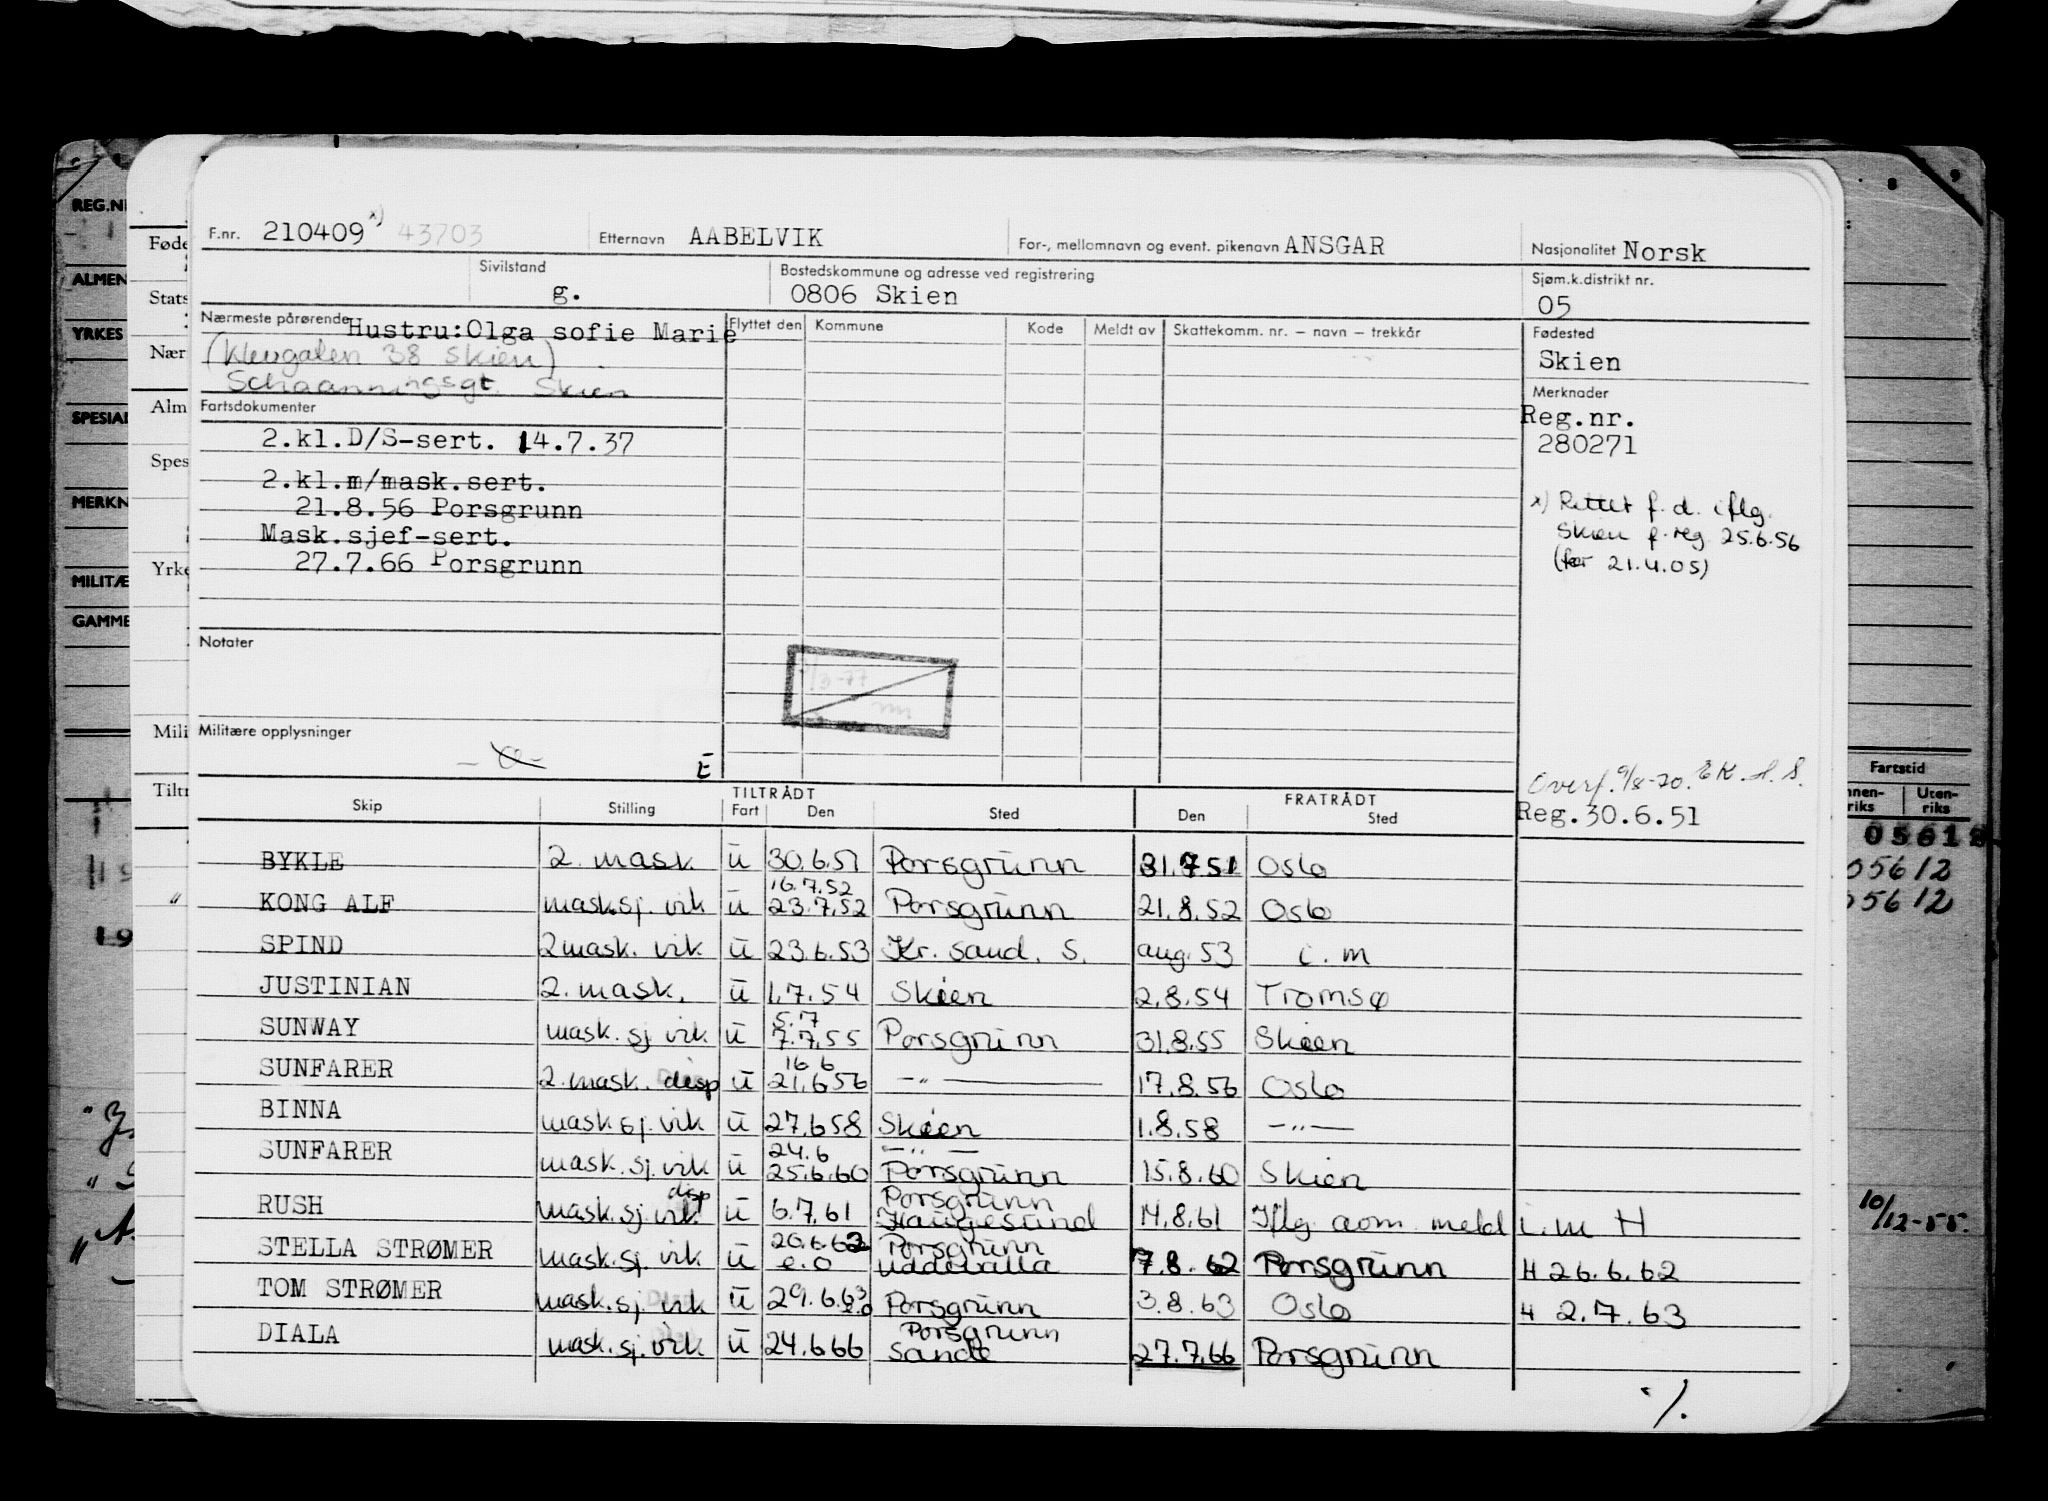 F.nr. 210409 x) 43703 Etternavn AABELVIK For-, mellomnavn og event. pikenavn ANSGAR Nasjonalitet Norsk
Sivilstand g. Bostedskommune og adresse ved registrering 0806 Skien Sjøm.k.distrikt nr. 05
Nærmeste pårørende Hustru:Olga sofie Marie Flyttet den Kommune Kode Meldt av Skattekomm. nr. – navn – trekkår Fødested
Skien
38 Skien)
Schaanningsgt. Skien
Merknader
Fartsdokumenter
Reg.nr.
280271
2.kl.D/S-sert. 14.7.37
2.kl.m/mask.sert.
21.8.56 Porsgrunn
Mask.sjef-sert.
27.7.66 Porsgrunn
x) Rettet f.d. iflg.
Skien f.reg. 25.6.56
(før 21.4.05)
Notater
/3-77
Militære opplysninger
E
Overf. 9/8-70.
Reg.30.6.51
TILTRÅDT FRATRÅDT
Skip Stilling Fart Den Sted Den Sted
BYKLE 2. mask u 30.6.51 Porsgrunn 31.7.51 Oslo
16.7.52
KONG ALF mask.sj. vik u 23.7.52 Porsgrunn 21.8.52 Oslo
SPIND 2 mask. vik u 23.6.53 Kr. sand. S. aug. 53 i.m
JUSTINIAN 2. mask. u 1.7.54 Skien 2.8.54 Tromsø
5.7
SUNWAY mask. sj vik u 7.7.55 Porsgrunn 31.8.55 Skien
16 6
SUNFARER 2. mask. disp u 21.6 56 —"— 17.8.56 Oslo
BINNA mask sj. vik u 27.6 58 Skien 1.8.58 —"—
24.6 —"—
SUNFARER mask. sj. vik u 25.6.60 Porsgrunn 15.8.60 Skien
disp Porsgrunn
RUSH mask. sj. vik u 6.7.61 Haugesund 14.8.61 Iflg. aom. meld i.m H
20.6.62 Porsgrunn
STELLA STRØMER mask. sj. vik u e.o Uddevalla 7.8.62 Porsgrunn H 26.6.62
TOM STRØMER mask. sj. vik u 29.6.63 e.o Porsgrunn 3.8.63 Oslo H 2.7.63
Porsgrunn
DIALA mask. sj. vik u 24.6 66 Sande 27.7.66 Porsgrunn
·/.
REG.NR
ALMEN
YRKES
SPESIAL
MERKN
MILITÆ
GAMME
Føde
Stats
Nær
Alm
Spes
Yrke
Mili
Tiltr
Fartstid
nnen-riks Uten-riks
05612
05612
10/12-55.